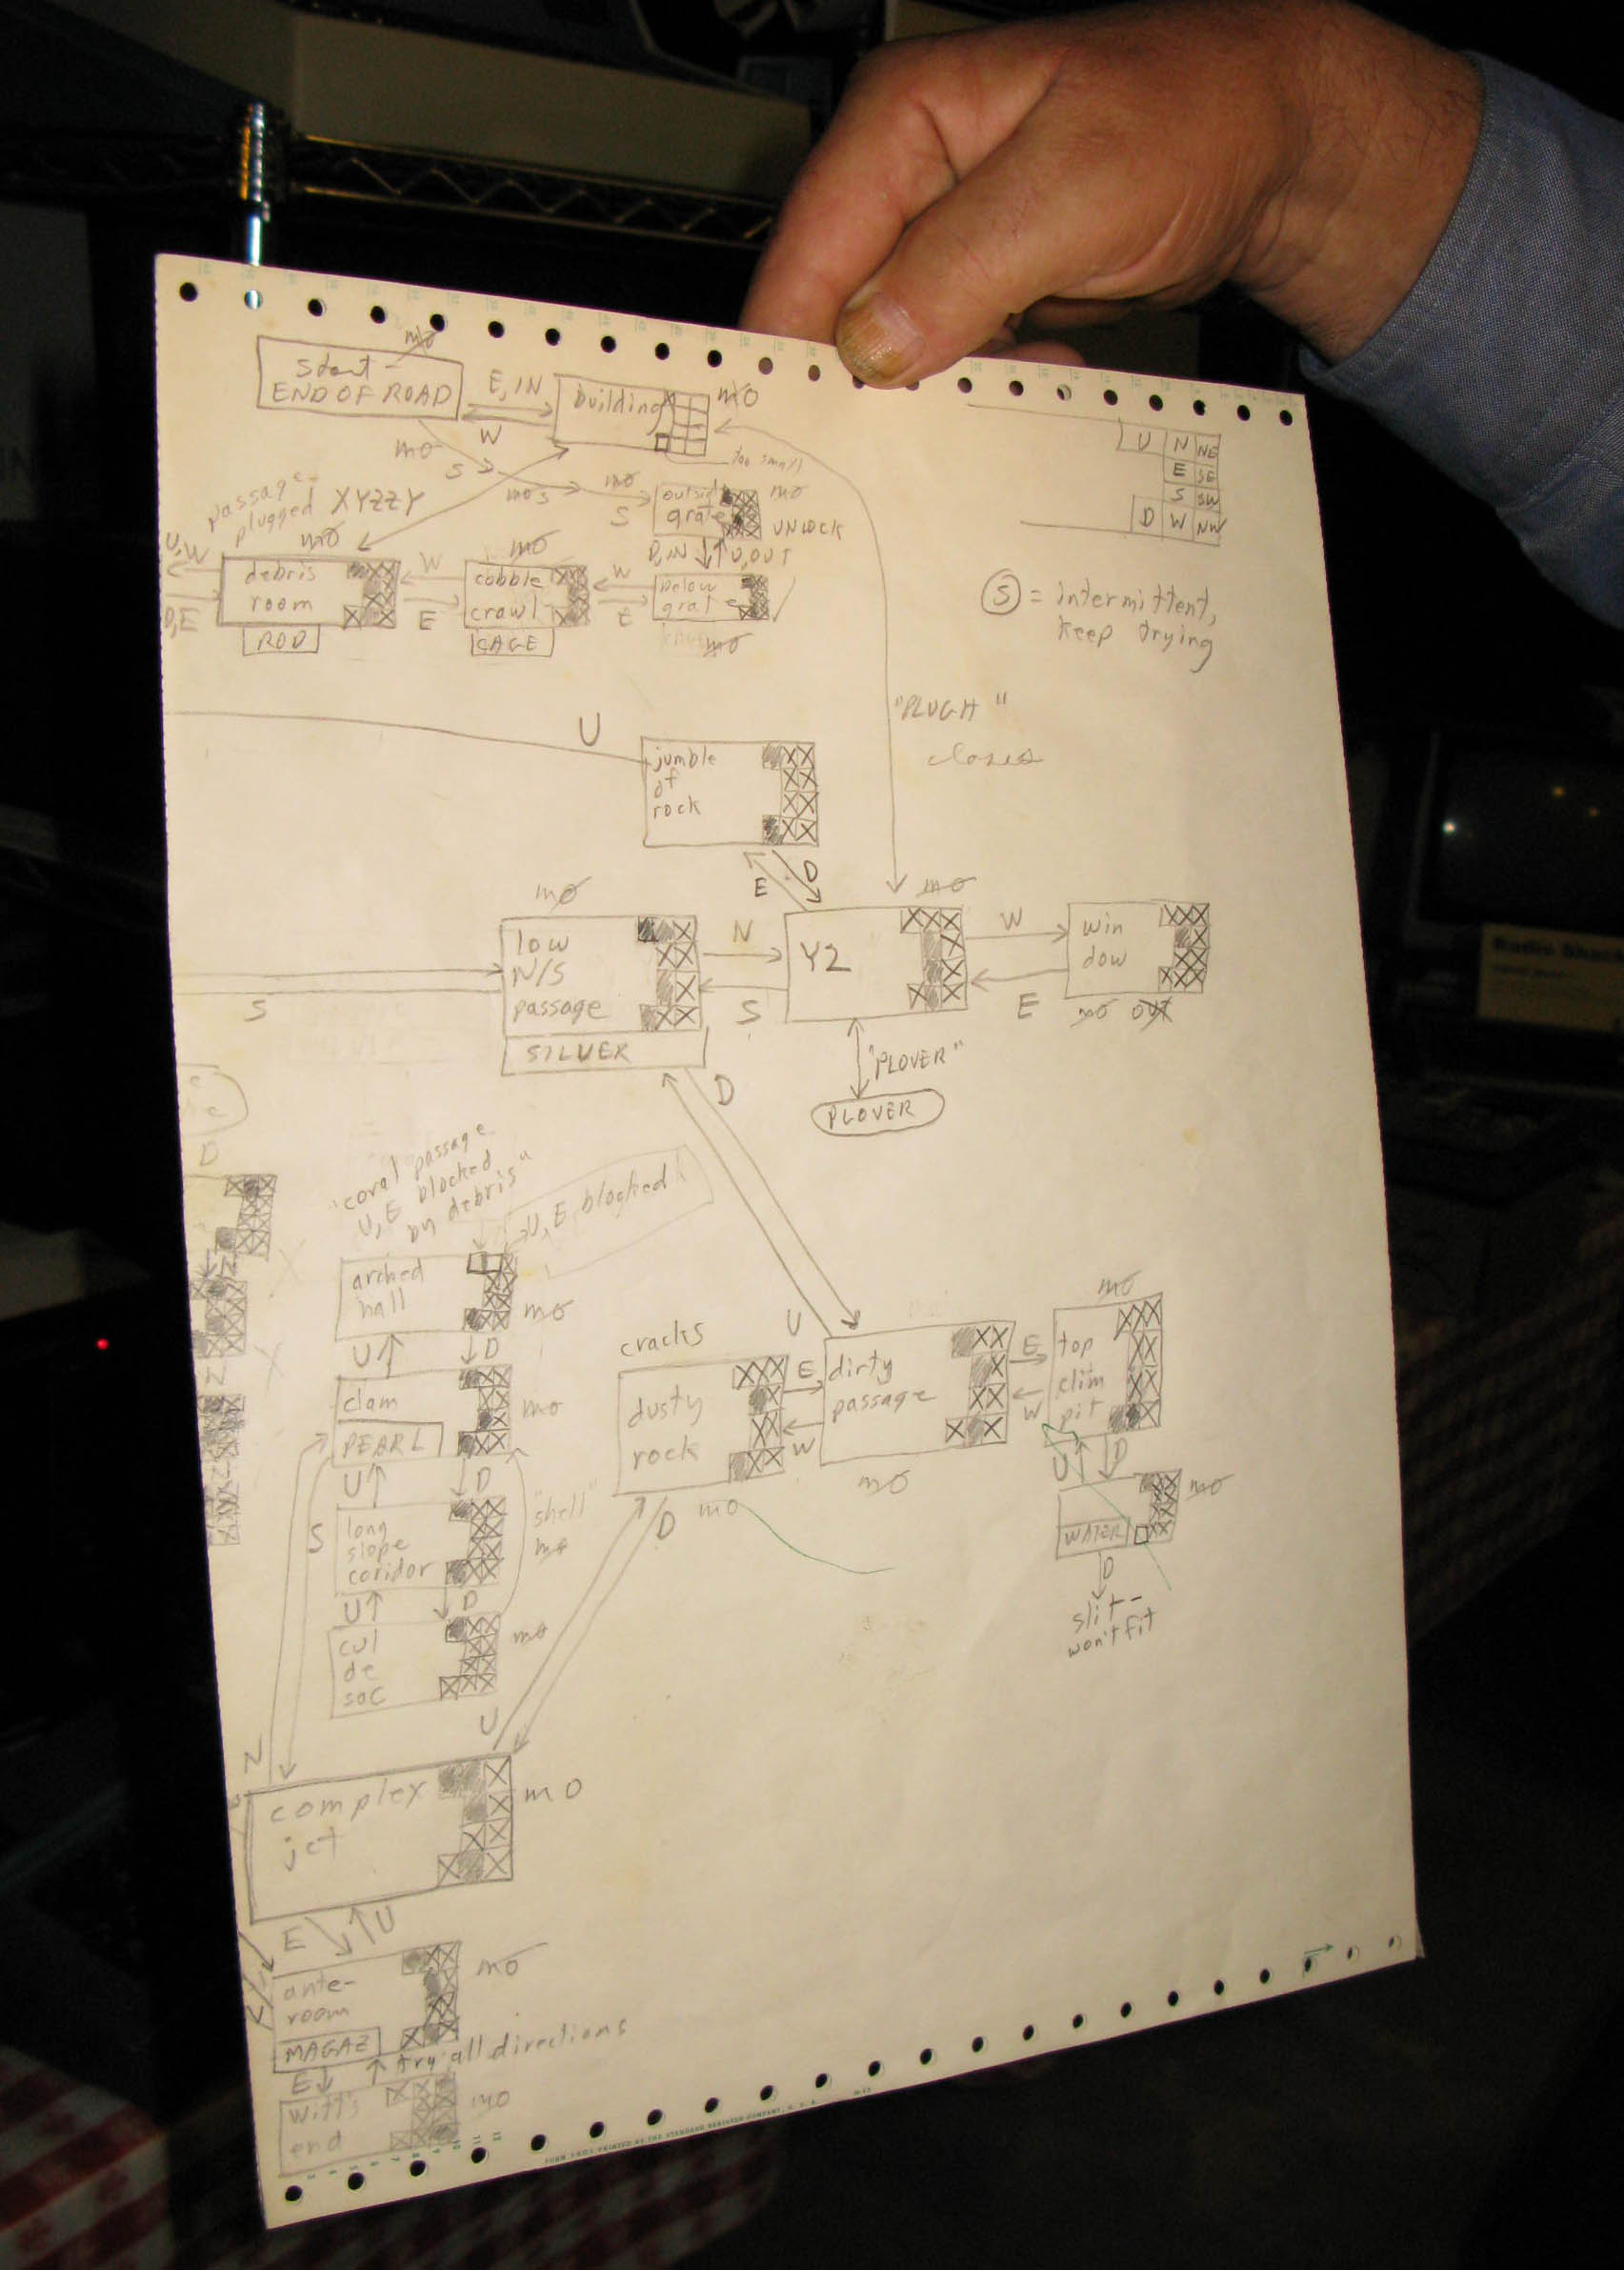 mo
Start -
END OF ROAD
E, IN
W
building
mo
too small
U N NE
E SE
S SW
D W NW
mo
S
mo s
mo
S
outside
grate
mo
UNLOCK
passage
plugged
XYZZY
mo
D, IN
U, OUT
U, W
D, E
debris
room
ROD
W
E
mo
cobble
crawl
CAGE
W
E
below
grate
mo
S = intermittent,
keep trying
"PLUGH"
closes
U
jumble
of
rock
E
D
mo
low
N/S
passage
SILVER
S
N
S
mo
Y2
W
E
win
dow
mo OUT
"PLOVER"
PLOVER
D
D
"coral passage
U, E blocked
by debris"
U, E, blocked
arched
hall
mo
U
D
clam
PEARL
mo
U
D
long
slope
coridor
"shell"
mo
S
U
D
cul
de
sac
mo
cracks
dusty
rock
mo
U
D
U
E
W
dirty
passage
mo
E
W
mo
top
clim
pit
U
D
WATER
mo
D
slit-
won't fit
N
complex
jct
mo
E
U
ante-
room
MAGAZ
mo
E
try all directions
witt's
end
mo